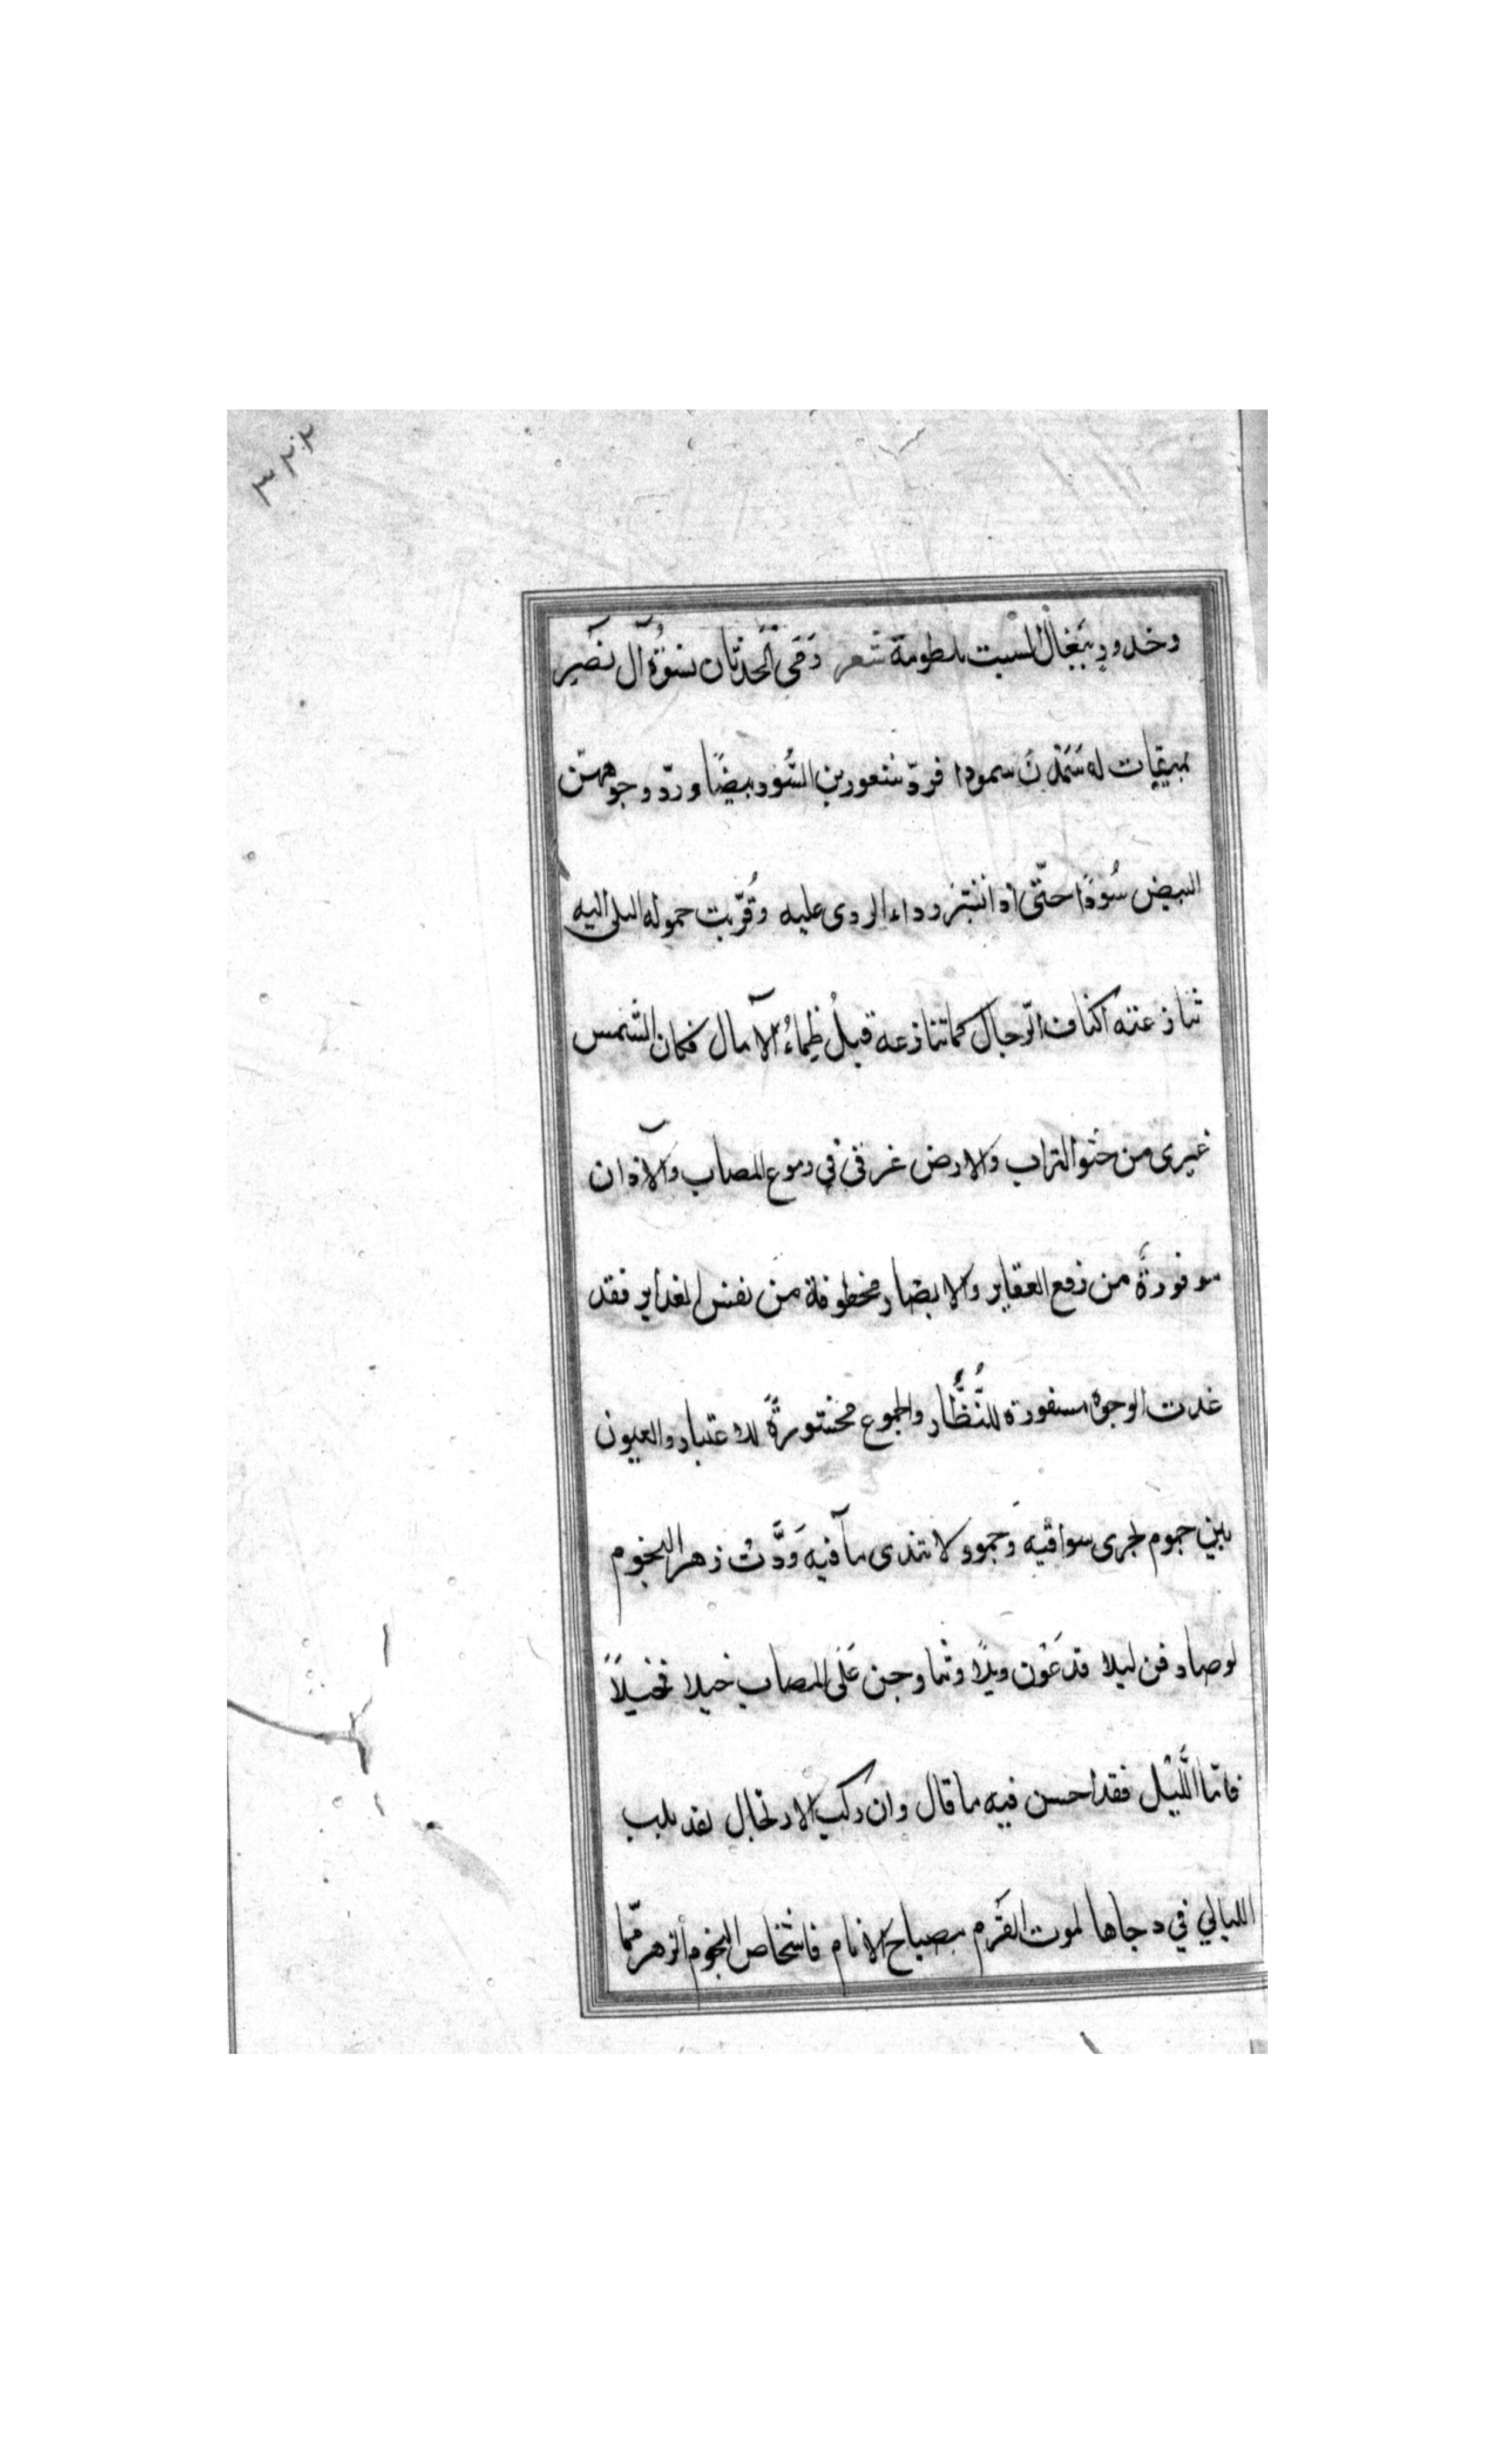 ٣٢٢
وخدودٍ بنعال السبت ملطومة شعر رَمَى الْحَدَثَان نسْوَةَ آل نصير
بمبيقيات له سَمَدْنَ سمودا فردّ شعورهن السُّود بيضًا وردّ وجوههنّ
البيض سُودًا حتّى اذا انتبز رداء الردى عليه وقُرّبت حموله البلى اليه
تنازعته اكتاف الرّجال كما تنازعه قبلُ ظِماءُ الآمال فكان الشمس
غبرى من حثو التراب والارض غرقى في دموع المصاب والآذان
موقورةً من رفع العقاير والابصار مخطوفة من نفش الغداير فقد
غدت الوجوه مسفورة للنُّظَّار والجموع محشورةً للاعتبار والعيون
بين جموم لجرى سواقيه وَجمود لا تندى مآقيه وَدَّتْ زهر النجوم
لو صادفن ليلا فدعَوْن ويلاً وتناوجن عَلَى المصاب خيلا فخيلاً
فامّا اللَّيْل فقد احسن فيه ما قال وان ركب الارتحال لقد بلب
الليالي في دجاها لموت القَرْم مصباح الانام فاشخاص النجوم الزهر ممّا